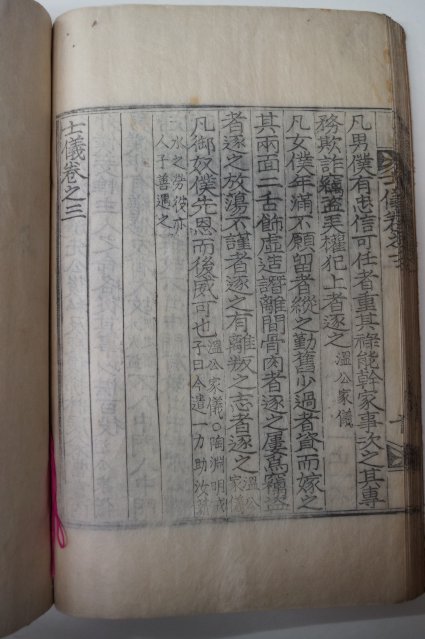 凡男僕有忠信可任者重其祿能幹家事次之其專
務欺詐竊盜弄權犯上者逐之 溫公家儀
凡女僕年滿不願留者縱之勤舊少過者資而嫁之
其兩面二舌飾虛造讒離間骨肉者逐之屢爲竊盜
者逐之放蕩不謹者逐之有離叛之志者逐之 溫公家儀
凡御奴僕先恩而後威可也 溫公家儀〇陶淵明戒
子曰今遣一力助汝薪
水之勞彼亦
人子善遇之
士儀卷之三
士儀卷之三